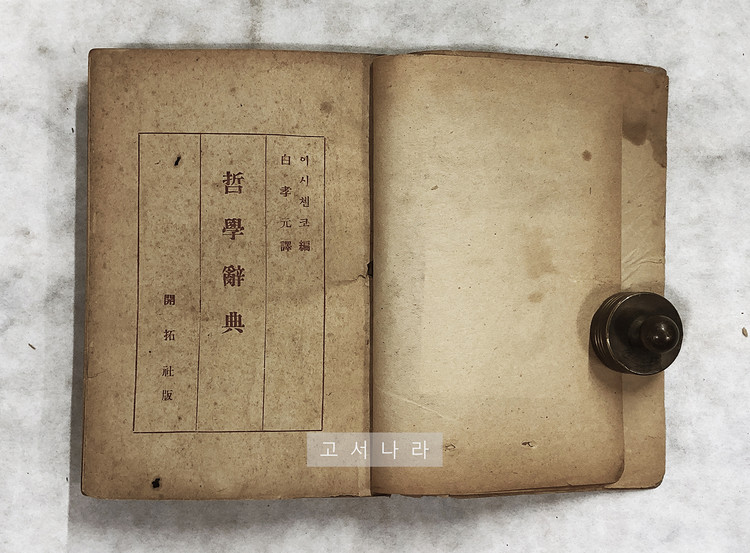 이시첸코 編
白孝元 譯
哲學辭典
開拓社版
고서나라